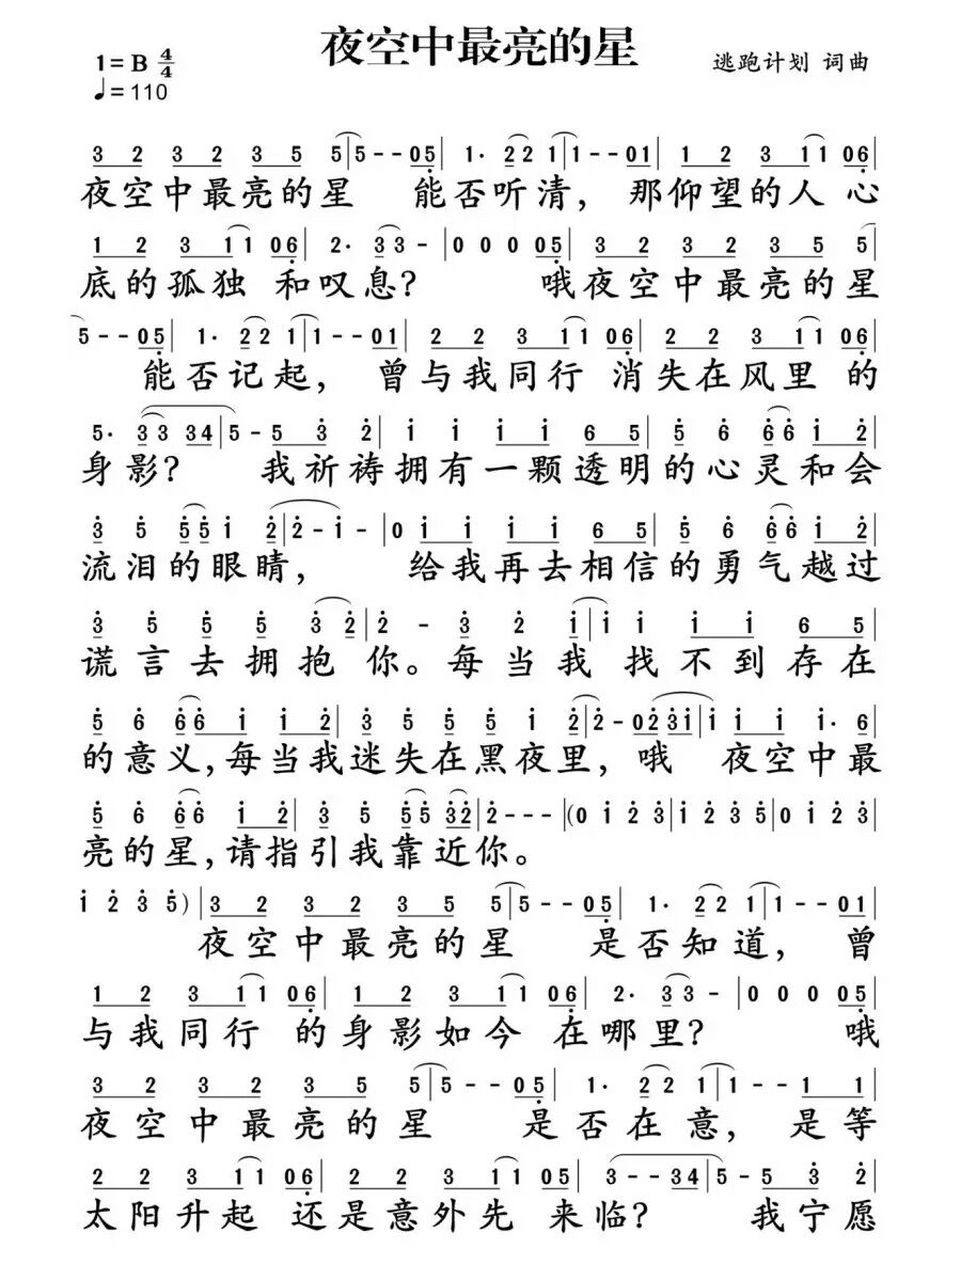 夜空中最亮的星
1=B 4/4
♩=110
逃跑计划 词曲
3 2 3 2 3 5 5|5--05|1· 22 1|1--01|1 2 3 11 06|
夜空中最亮的星 能否听清，那仰望的人 心
1 2 3 11 06|2· 33-|0 0 0 05|3 2 3 2 3 5 5
底的孤独 和叹息？ 哦夜空中最亮的星
5--05|1· 22 1|1--01|2 2 3 11 06|2 2 3 11 06|
能否记起，曾与我同行 消失在风里 的
5· 33 34|5-5 3 2|i i i i 6 5|5 6 66 i 2|
身影？ 我祈祷拥有一颗透明的心灵和会
3 5 55 i 2|2-i-|0 i i i i 6 5|5 6 66 i 2|
流泪的眼睛， 给我再去相信的勇气越过
3 5 5 5 3 2|2 - 3 2 i|i i i i 6 5|
谎言去拥抱你。每当我 找不到存在
5 6 66 i i 2|3 5 5 5 i 2|2-023i|i i i i· 6|
的意义，每当我迷失在黑夜里，哦 夜空中最
5 6 66 i 2|3 5 55 32|2---|(0 i 2 3|i 2 3 5|0 i 2 3|
亮的星，请指引我靠近你。
i 2 3 5)|3 2 3 2 3 5 5|5--05|1· 22 1|1--01|
夜空中最亮的星 是否知道，曾
1 2 3 11 06|1 2 3 11 06|2· 33-|0 0 0 05|
与我同行 的身影如今 在哪里？ 哦
3 2 3 2 3 5 5|5--05|1· 22 1|1--1 1|
夜空中最亮的星 是否在意，是等
2 2 3 11 06|2 2 3 11 05|3--34|5-5 3 2|
太阳升起 还是意外先 来临？ 我宁愿